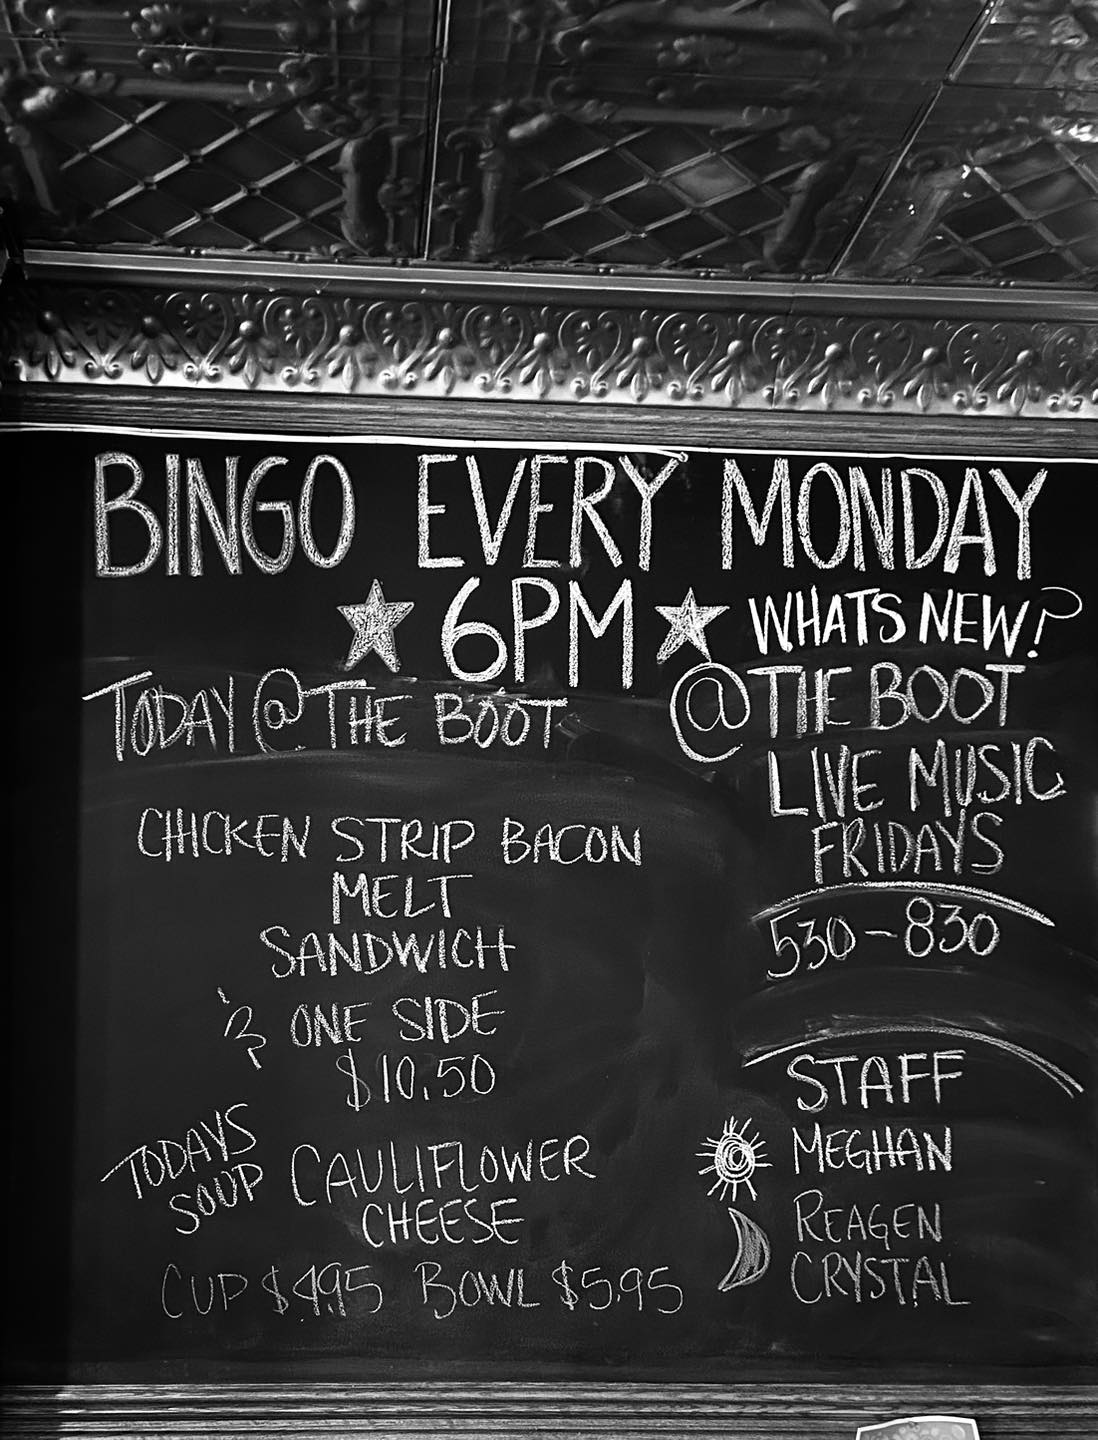 BINGO EVERY MONDAY
6PM
TODAY @ THE BOOT
CHICKEN STRIP BACON
MELT
SANDWICH
& ONE SIDE
$10.50
TODAYS
SOUP
CAULIFLOWER
CHEESE
CUP $4.95 BOWL $5.95
WHATS NEW?
@ THE BOOT
LIVE MUSIC
FRIDAYS
530-830
STAFF
MEGHAN
REAGEN
CRYSTAL